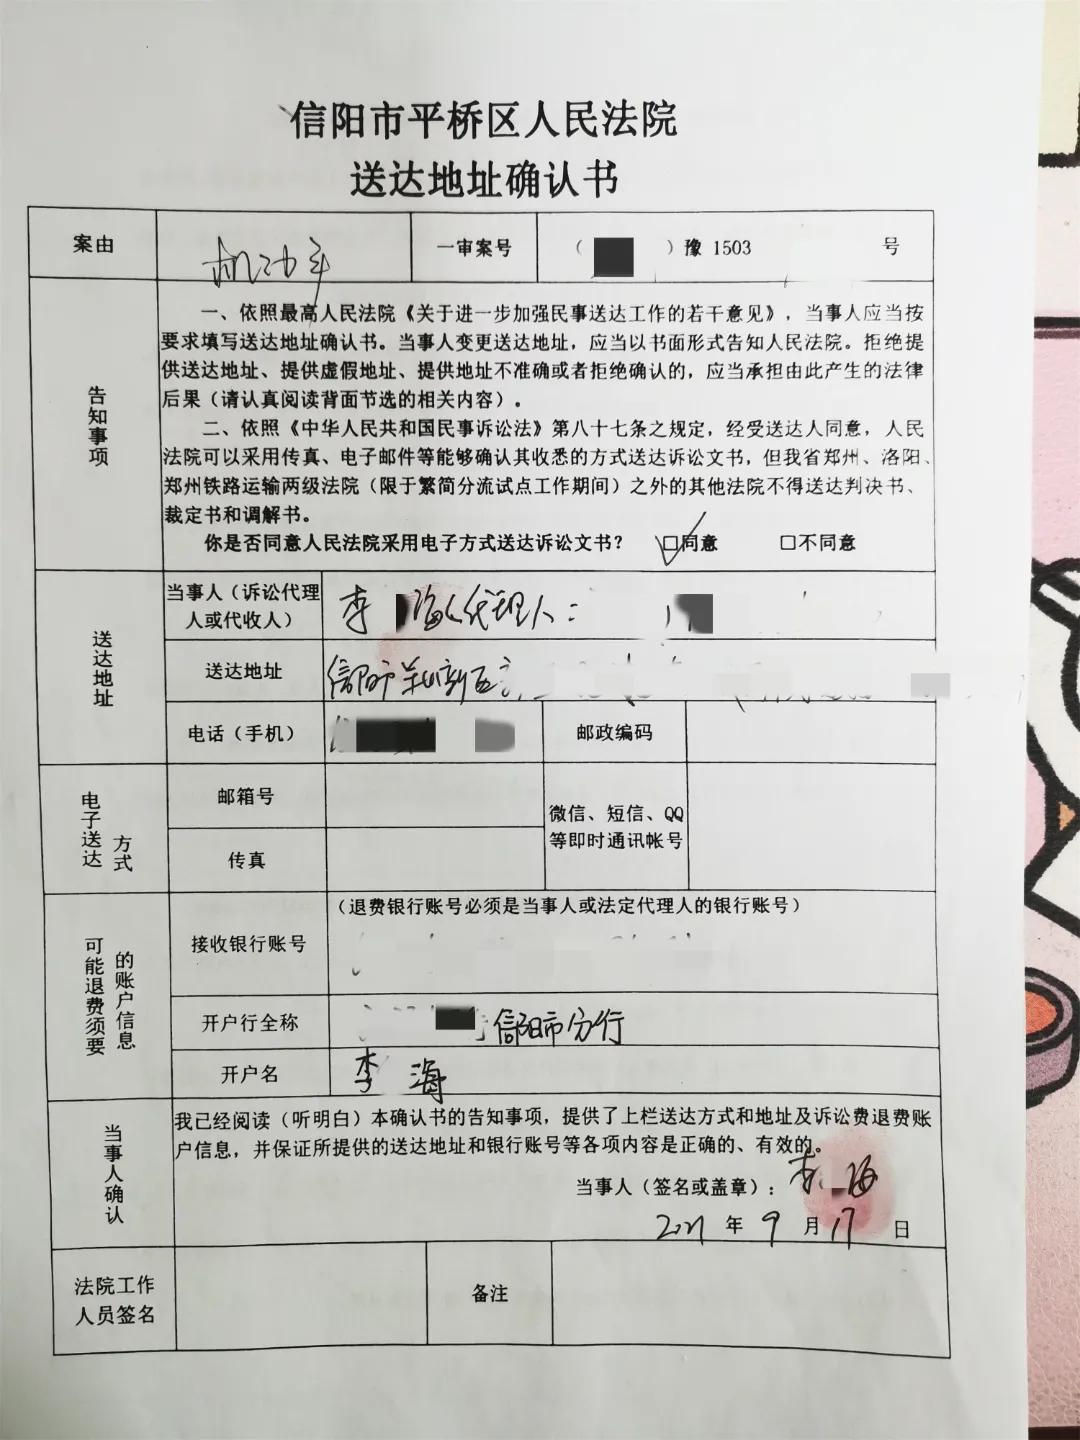 信阳市平桥区人民法院
送达地址确认书
案由
机动车
一审案号
（ ）豫 1503 号
告知事项
一、依照最高人民法院《关于进一步加强民事送达工作的若干意见》，当事人应当按
要求填写送达地址确认书。当事人变更送达地址，应当以书面形式告知人民法院。拒绝提
供送达地址、提供虚假地址、提供地址不准确或者拒绝确认的，应当承担由此产生的法律
后果（请认真阅读背面节选的相关内容）。
二、依照《中华人民共和国民事诉讼法》第八十七条之规定，经受送达人同意，人民
法院可以采用传真、电子邮件等能够确认其收悉的方式送达诉讼文书，但我省郑州、洛阳、
郑州铁路运输两级法院（限于繁简分流试点工作期间）之外的其他法院不得送达判决书、
裁定书和调解书。
你是否同意人民法院采用电子方式送达诉讼文书？ ☑同意 □不同意
送达地址
当事人（诉讼代理
人或代收人）
李 海 代理人：
送达地址
信阳市羊山新区
电话（手机）
邮政编码
电子送达方式
邮箱号
传真
微信、短信、QQ
等即时通讯帐号
可能退费须要的账户信息
接收银行账号
（退费银行账号必须是当事人或法定代理人的银行账号）
开户行全称
信阳市分行
开户名
李 海
当事人确认
我已经阅读（听明白）本确认书的告知事项，提供了上栏送达方式和地址及诉讼费退费账
户信息，并保证所提供的送达地址和银行账号等各项内容是正确的、有效的。
当事人（签名或盖章）：李 海
2021 年 9 月 17 日
法院工作
人员签名
备注